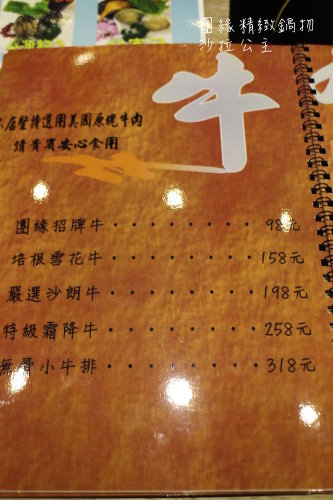 團緣精緻鍋物
沙拉公主
牛
店堅持選用美國原塊牛肉
請貴賓安心食用
團緣招牌牛・・・・・・・・98元
培根雪花牛・・・・・・・・158元
嚴選沙朗牛・・・・・・・・198元
特級霜降牛・・・・・・・・258元
無骨小牛排・・・・・・・・318元